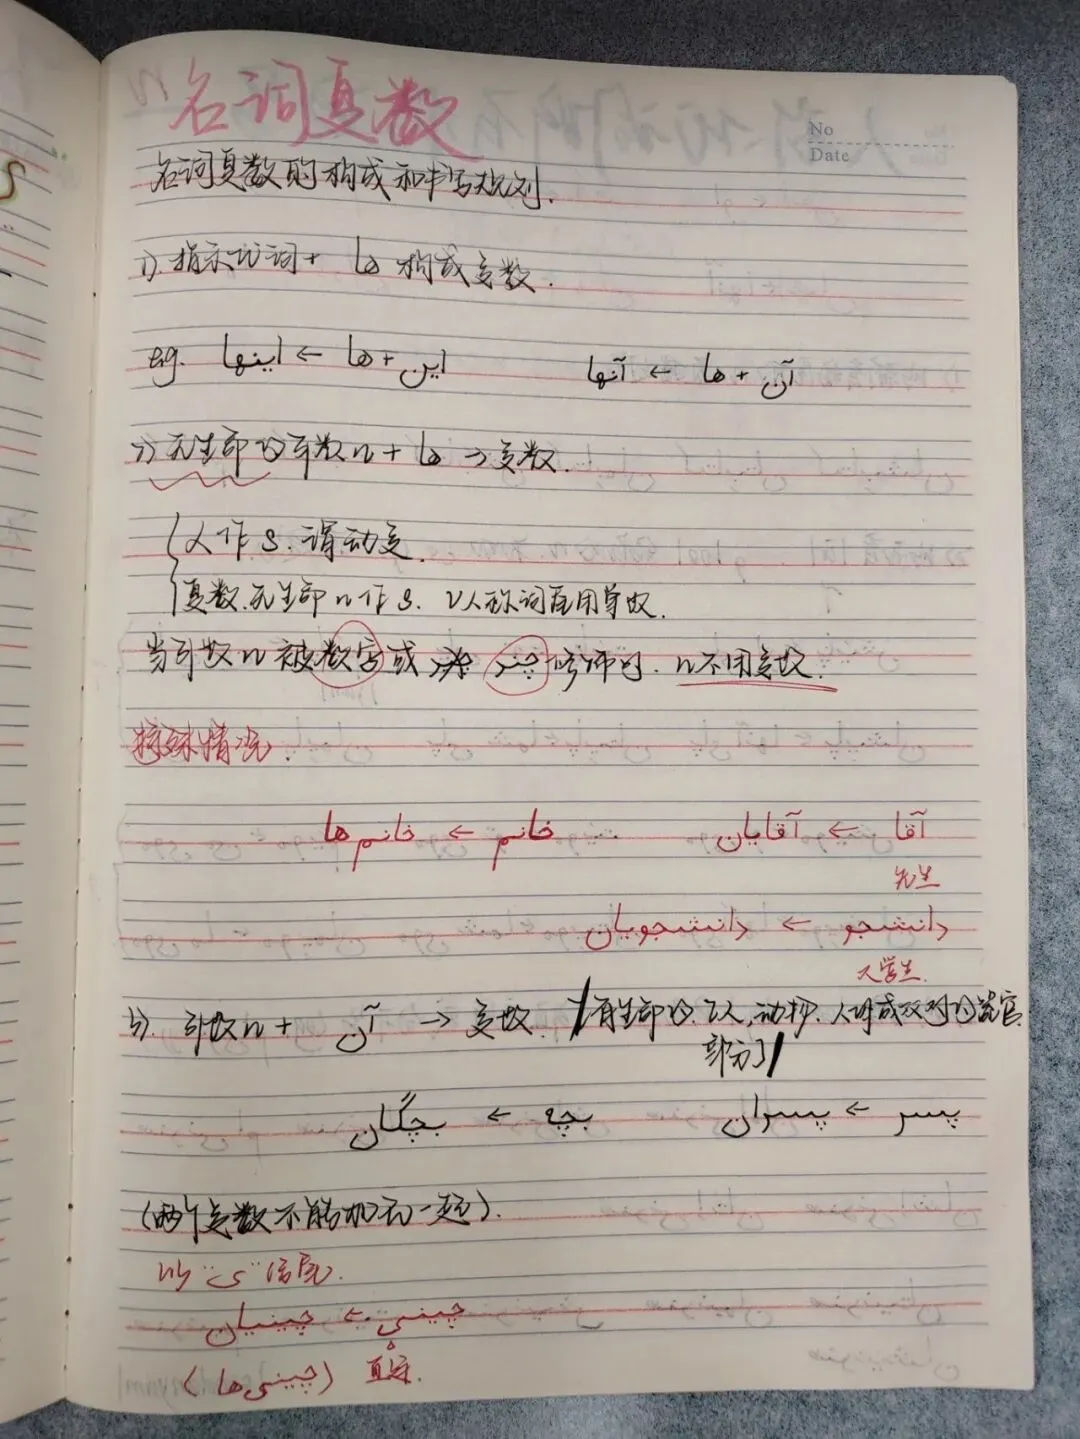 名词复数
No
Date
名词复数的构成和书写规则.
1). 指示代词 + ها 构成复数.
eg. این + ها ← اینها    آن + ها ← آنها
2) 无生命的可数n + ها → 复数.
人作S. 谓动复.
复数.无生命n作S. V人称词尾用单数.
当可数n被数字或 چند 修饰时. n不用复数.
特殊情况:
آقا ← آقایان    خانم ← خانم‌ها
先生
دانشجو ← دانشجویان
大学生.
3). 可数n + آن → 复数. 有生命的人,动物.人体成双对的器官
部分
پسر ← پسران    بچه ← بچگان
(两个复数不能加在一起).
以 "ی" 结尾.
چینی ← چینیان
(چینی‌ها) 直字.